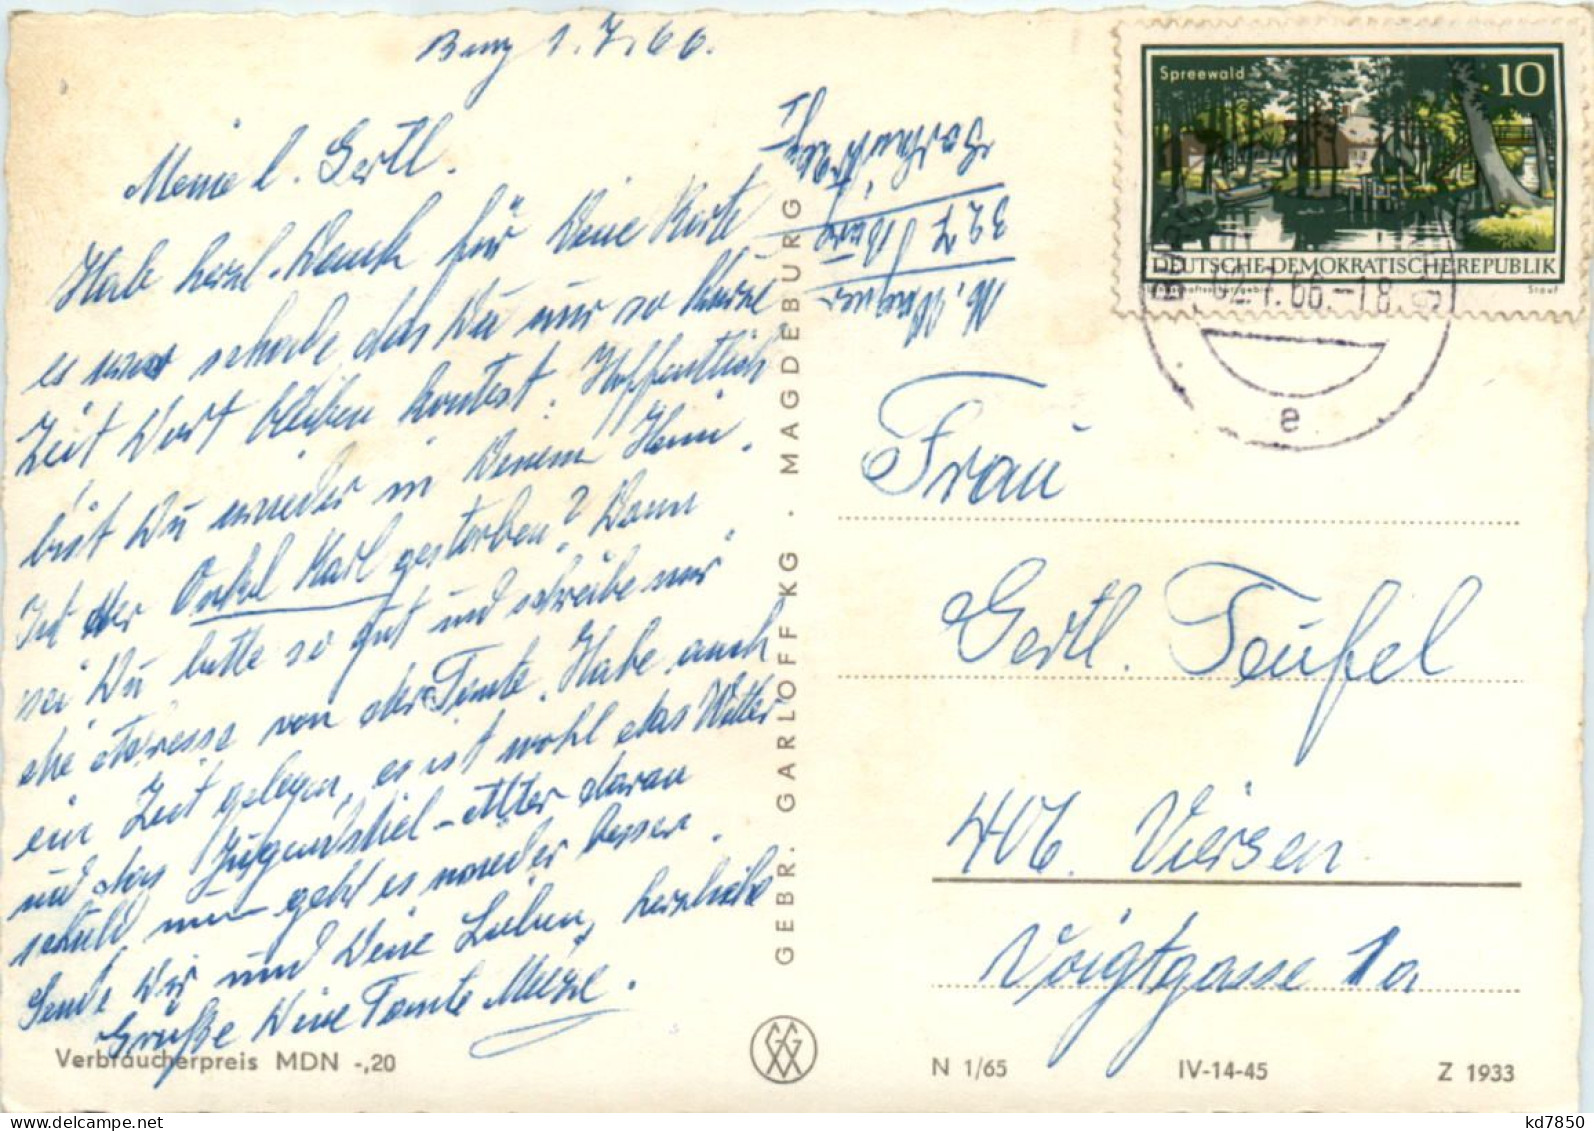 Burg 1.7.66.
Meine l. Gertl.
Hab herzl. Dank für Deine Karte
es war schade das Du nur so kurze
Zeit Dort bleiben kontest. Hoffentlich
bist Du wieder in Deinem Heim.
Ist der Onkel Karl gestorben? Dann
sei Du bitte so gut und schreibe mir
die Adresse von der Tante. Habe auch
ein Zeit gelegen, es ist wohl das Wetter
und das Jugendstiel-Alter daran
schuld nun geht es wieder besser.
Sende Dir und Deine Lieben, herzliche
Grüße Deine Tante Mieze.
Verbraucherpreis MDN -,20
GEBR. GARLOFF KG · MAGDEBURG
M. Wagner
327 Burg
Spreewald
10
DEUTSCHE DEMOKRATISCHE REPUBLIK
Landschaftsschutzgebiet
Stauf
66.-18
e
Frau
Gertl. Teufel
406. Viersen
Voigtgasse 1a
N 1/65
IV-14-45
Z 1933
kd7850